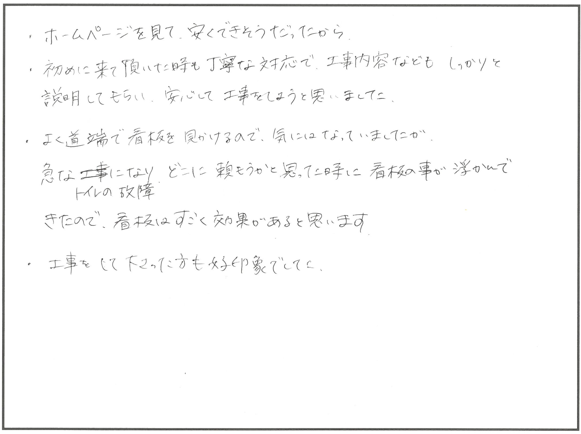 ・ホームページを見て、安くできそうだったから
・初めに来て頂いた時も丁寧な対応で、工事内容なども しっかりと
説明してもらい、安心して工事をしようと思いました。
・よく道端で看板を見かけるので、気にはなっていましたが、
急な工事になり どこに頼もうかと思ってた時に 看板の事が浮かんで
トイレの故障
きたので、看板はすごく効果があると思います
・工事をして下さった方も好印象でした。